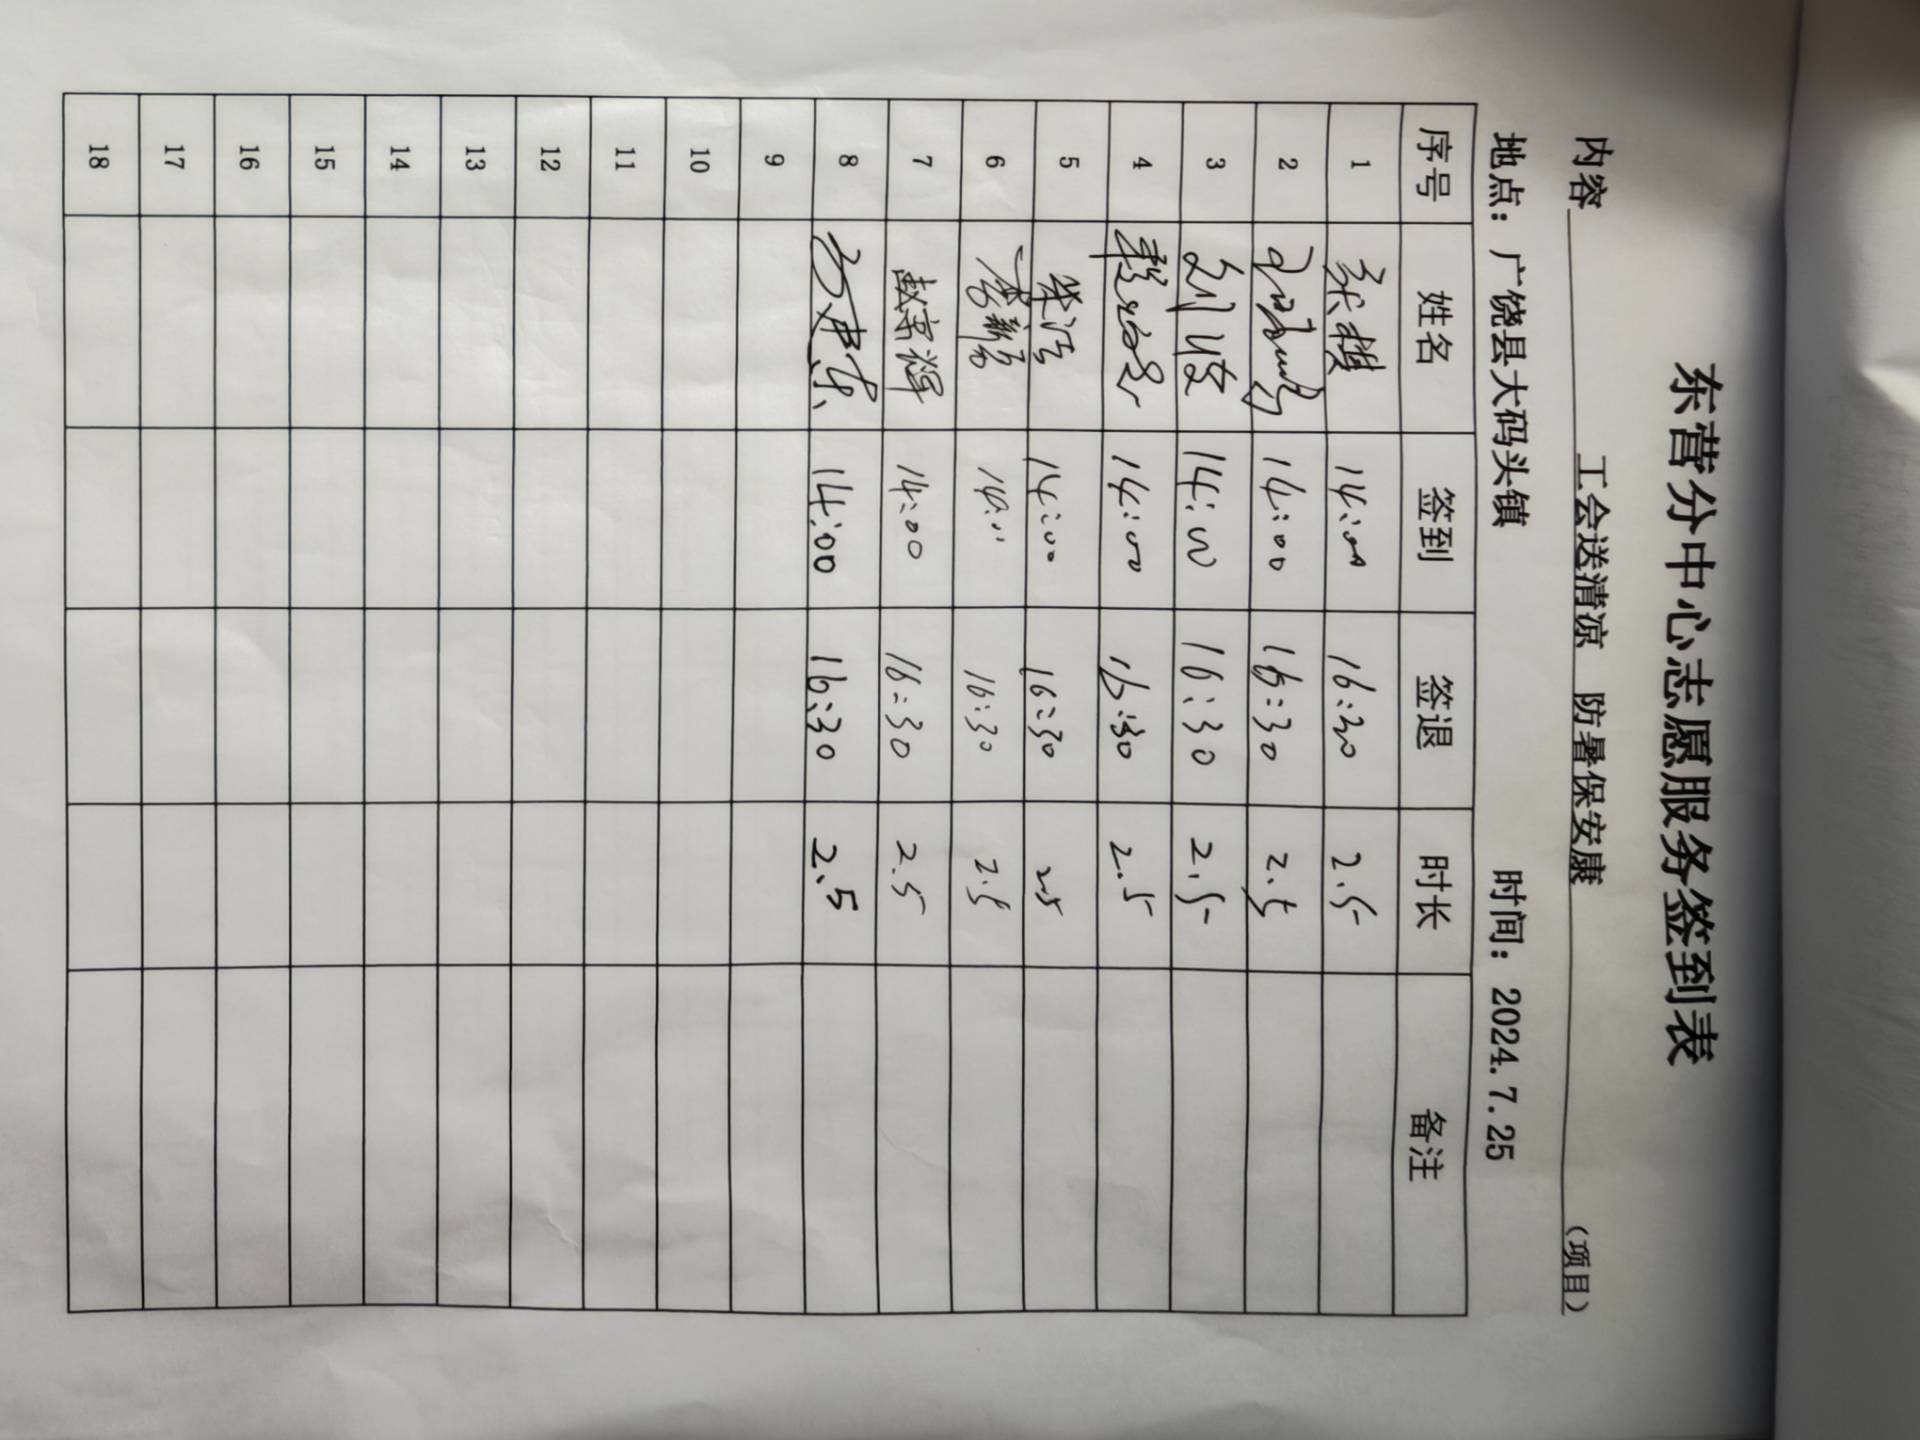 东营分中心志愿服务签到表
内容 工会送清凉 防暑保安康 (项目)
地点：广饶县大码头镇 时间：2024.7.25
序号 姓名 签到 签退 时长 备注
1 14:00 16:30 2.5
2 14:00 16:30 2.5
3 14:00 16:30 2.5
4 14:00 16:30 2.5
5 14:00 16:30 2.5
6 14:00 16:30 2.5
7 赵宗辉 14:00 16:30 2.5
8 14:00 16:30 2.5
9
10
11
12
13
14
15
16
17
18